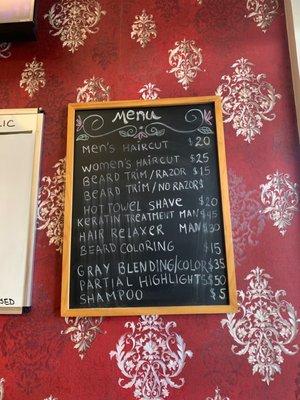 LIC
Menu
MEN'S HAIRCUT $20
WOMEN'S HAIRCUT $25
BEARD TRIM/RAZOR $15
BEARD TRIM/NO RAZOR $
HOT TOWEL SHAVE $20
KERATIN TREATMENT MAN $45
HAIR RELAXER MAN $30
BEARD COLORING $15
GRAY BLENDING/COLOR $35
PARTIAL HIGHLIGHTS $50
SHAMPOO $5
OSED